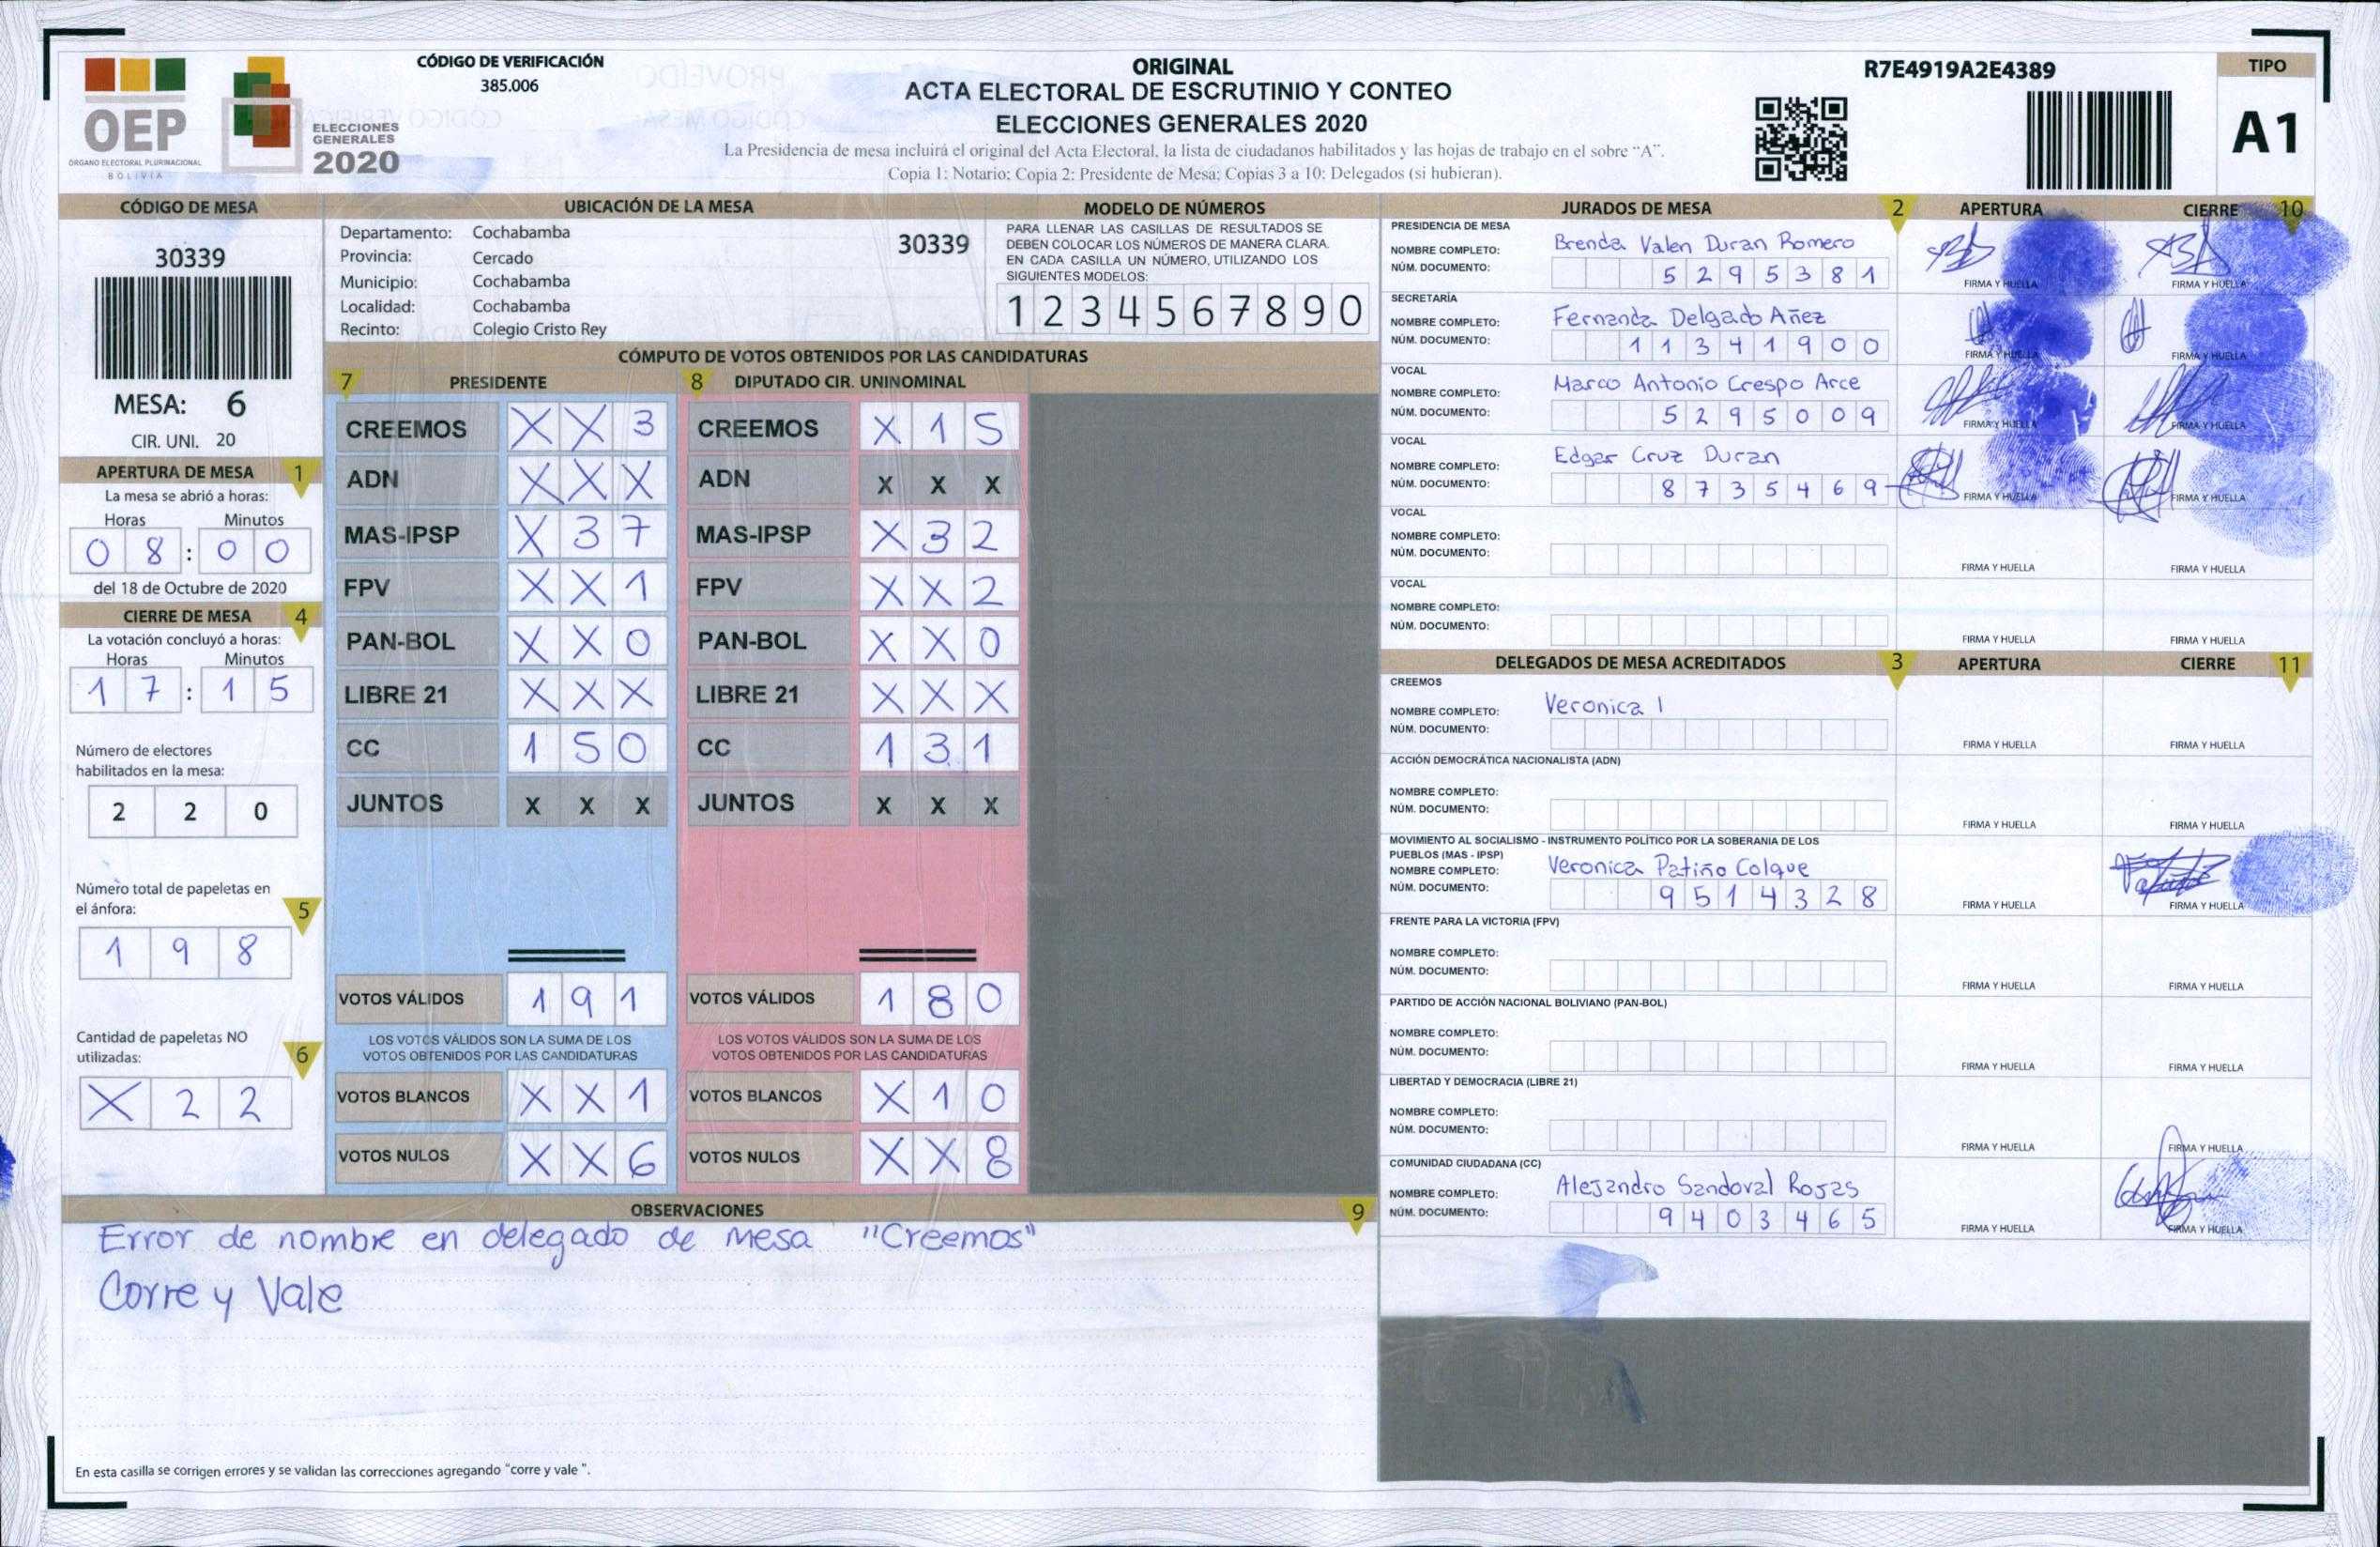 OEP
ÓRGANO ELECTORAL PLURINACIONAL
BOLIVIA
ELECCIONES
GENERALES
2020
CÓDIGO DE VERIFICACIÓN
385.006
ORIGINAL
ACTA ELECTORAL DE ESCRUTINIO Y CONTEO
ELECCIONES GENERALES 2020
La Presidencia de mesa incluirá el original del Acta Electoral, la lista de ciudadanos habilitados y las hojas de trabajo en el sobre “A”.
Copia 1: Notario; Copia 2: Presidente de Mesa; Copias 3 a 10: Delegados (si hubieran).
R7E4919A2E4389
TIPO
A1
CÓDIGO DE MESA
30339
MESA: 6
CIR. UNI. 20
APERTURA DE MESA 1
La mesa se abrió a horas:
Horas Minutos
0 8 : 0 0
del 18 de Octubre de 2020
CIERRE DE MESA 4
La votación concluyó a horas:
Horas Minutos
1 7 : 1 5
Número de electores
habilitados en la mesa:
2 2 0
Número total de papeletas en
el ánfora: 5
1 9 8
Cantidad de papeletas NO
utilizadas: 6
X 2 2
UBICACIÓN DE LA MESA
Departamento: Cochabamba 30339
Provincia: Cercado
Municipio: Cochabamba
Localidad: Cochabamba
Recinto: Colegio Cristo Rey
MODELO DE NÚMEROS
PARA LLENAR LAS CASILLAS DE RESULTADOS SE
DEBEN COLOCAR LOS NÚMEROS DE MANERA CLARA.
EN CADA CASILLA UN NÚMERO, UTILIZANDO LOS
SIGUIENTES MODELOS:
1 2 3 4 5 6 7 8 9 0
CÓMPUTO DE VOTOS OBTENIDOS POR LAS CANDIDATURAS
7 PRESIDENTE 8 DIPUTADO CIR. UNINOMINAL
CREEMOS X X 3 CREEMOS X 1 5
ADN X X X ADN X X X
MAS-IPSP X 3 7 MAS-IPSP X 3 2
FPV X X 1 FPV X X 2
PAN-BOL X X 0 PAN-BOL X X 0
LIBRE 21 X X X LIBRE 21 X X X
CC 1 5 0 CC 1 3 1
JUNTOS X X X JUNTOS X X X
VOTOS VÁLIDOS 1 9 1 VOTOS VÁLIDOS 1 8 0
LOS VOTOS VÁLIDOS SON LA SUMA DE LOS LOS VOTOS VÁLIDOS SON LA SUMA DE LOS
VOTOS OBTENIDOS POR LAS CANDIDATURAS VOTOS OBTENIDOS POR LAS CANDIDATURAS
VOTOS BLANCOS X X 1 VOTOS BLANCOS X 1 0
VOTOS NULOS X X 6 VOTOS NULOS X X 8
OBSERVACIONES 9
Error de nombre en delegado de mesa "Creemos"
Corre y Vale
En esta casilla se corrigen errores y se validan las correcciones agregando “corre y vale ”.
JURADOS DE MESA 2 APERTURA CIERRE 10
PRESIDENCIA DE MESA
NOMBRE COMPLETO: Brenda Valen Duran Romero
NÚM. DOCUMENTO: 5 2 9 5 3 8 1
FIRMA Y HUELLA FIRMA Y HUELLA
SECRETARÍA
NOMBRE COMPLETO: Fernanda Delgado Añez
NÚM. DOCUMENTO: 1 1 3 4 1 9 0 0
FIRMA Y HUELLA FIRMA Y HUELLA
VOCAL
NOMBRE COMPLETO: Marco Antonio Crespo Arce
NÚM. DOCUMENTO: 5 2 9 5 0 0 9
FIRMA Y HUELLA FIRMA Y HUELLA
VOCAL
NOMBRE COMPLETO: Edgar Cruz Duran
NÚM. DOCUMENTO: 8 7 3 5 4 6 9
FIRMA Y HUELLA FIRMA Y HUELLA
VOCAL
NOMBRE COMPLETO:
NÚM. DOCUMENTO:
FIRMA Y HUELLA FIRMA Y HUELLA
VOCAL
NOMBRE COMPLETO:
NÚM. DOCUMENTO:
FIRMA Y HUELLA FIRMA Y HUELLA
DELEGADOS DE MESA ACREDITADOS 3 APERTURA CIERRE 11
CREEMOS
NOMBRE COMPLETO: Veronica l
NÚM. DOCUMENTO:
FIRMA Y HUELLA FIRMA Y HUELLA
ACCIÓN DEMOCRÁTICA NACIONALISTA (ADN)
NOMBRE COMPLETO:
NÚM. DOCUMENTO:
FIRMA Y HUELLA FIRMA Y HUELLA
MOVIMIENTO AL SOCIALISMO - INSTRUMENTO POLÍTICO POR LA SOBERANIA DE LOS
PUEBLOS (MAS - IPSP)
NOMBRE COMPLETO: Veronica Patiño Colque
NÚM. DOCUMENTO: 9 5 1 4 3 2 8
FIRMA Y HUELLA FIRMA Y HUELLA
FRENTE PARA LA VICTORIA (FPV)
NOMBRE COMPLETO:
NÚM. DOCUMENTO:
FIRMA Y HUELLA FIRMA Y HUELLA
PARTIDO DE ACCIÓN NACIONAL BOLIVIANO (PAN-BOL)
NOMBRE COMPLETO:
NÚM. DOCUMENTO:
FIRMA Y HUELLA FIRMA Y HUELLA
LIBERTAD Y DEMOCRACIA (LIBRE 21)
NOMBRE COMPLETO:
NÚM. DOCUMENTO:
FIRMA Y HUELLA FIRMA Y HUELLA
COMUNIDAD CIUDADANA (CC)
NOMBRE COMPLETO: Alejandro Sandoval Rojas
NÚM. DOCUMENTO: 9 4 0 3 4 6 5
FIRMA Y HUELLA FIRMA Y HUELLA